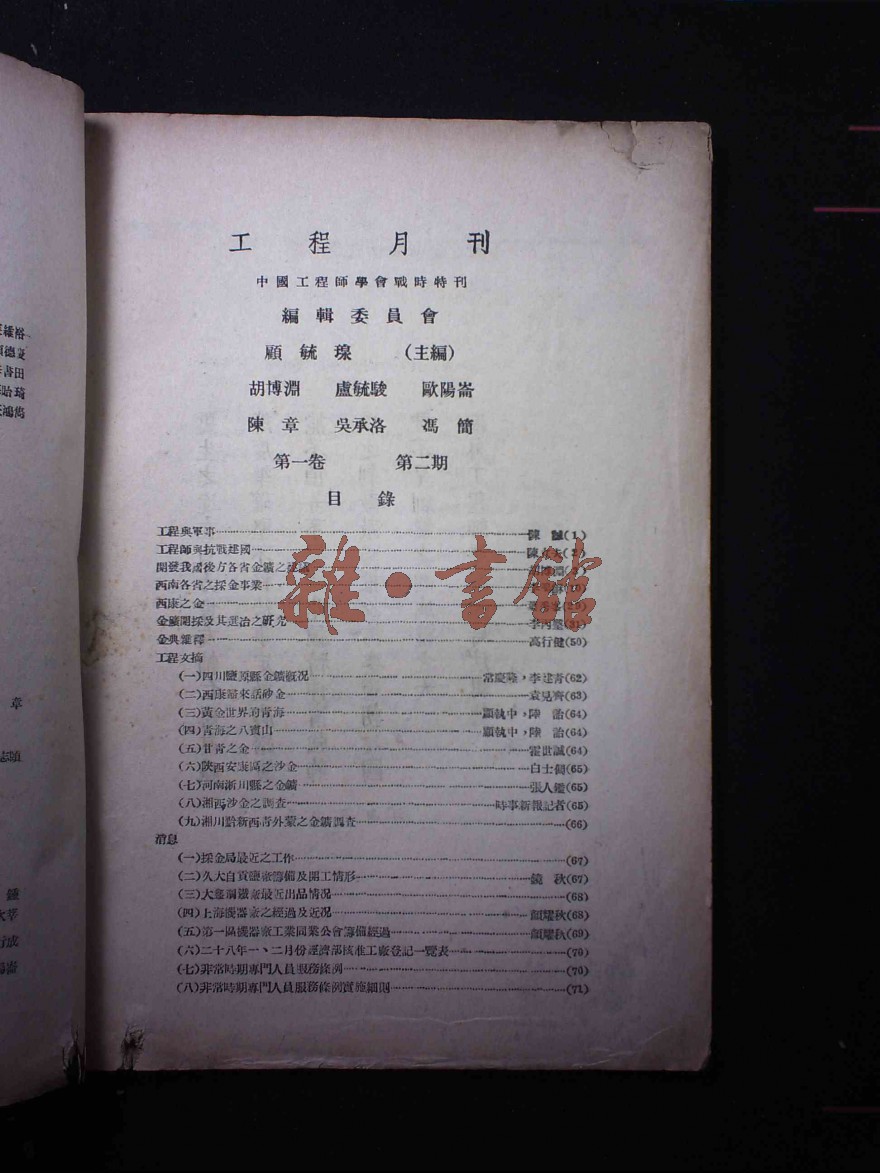 工程月刊
中國工程師學會戰時特刊
編輯委員會
顧毓瑔 (主編)
胡博淵 盧毓駿 歐陽崙
陳章 吳承洛 馮簡
第一卷 第二期
目錄
工程與軍事 陳誠(1)
工程師與抗戰建國 陳
開發我國後方各省金礦之
西南各省之採金事業
西康之金
金礦開採及其選治之研究 李丙璧(31)
金典雜釋 高行健(50)
工程文摘
(一)四川鹽源縣金礦概況 常慶隆,李建青(62)
(二)西康歸來話砂金 袁見齊(63)
(三)黃金世界的青海 顧執中,陸詒(64)
(四)青海之八寶山 顧執中,陸詒(64)
(五)甘青之金 霍世誠(64)
(六)陝西安康區之沙金 白士倜(65)
(七)河南淅川縣之金礦 張人鑑(65)
(八)湘西沙金之調查 時事新報記者(65)
(九)湘川黔新西青外蒙之金礦調查 (66)
消息
(一)採金局最近之工作 (67)
(二)久大自貢鹽廠籌備及開工情形 鏡秋(67)
(三)大鑫鋼鐵廠最近出品情況 (68)
(四)上海機器廠之經過及近況 顏耀秋(68)
(五)第一區機器廠工業同業公會籌備經過 顏耀秋(69)
(六)二十八年一、二月份經濟部核准工廠登記一覽表 (70)
(七)非常時期專門人員服務條例 (70)
(八)非常時期專門人員服務條例實施細則 (71)
雜·書館
維裕
德
書田
章
鍾